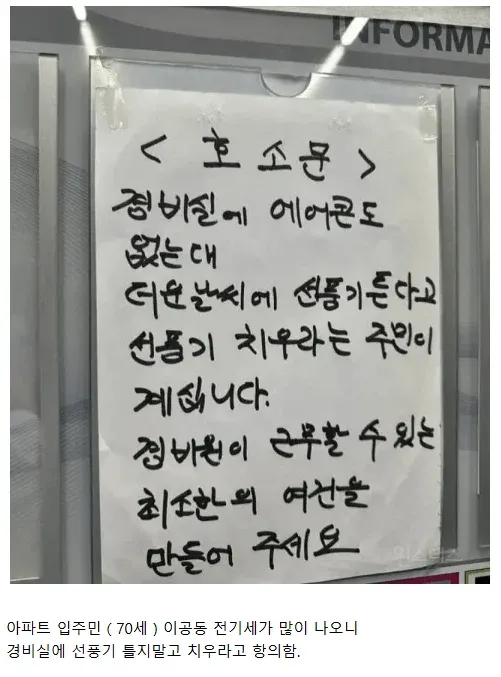 INFORMA
< 호 소 문 >
경비실에 에어콘도
없는대
더운날씨에 선풍기튼다고
선풍기 치우라는 주민이
계십니다.
경비원이 근무할 수 있는
최소한의 여건을
만들어 주세요
인스티즈
아파트 입주민 ( 70세 ) 이공동 전기세가 많이 나오니
경비실에 선풍기 틀지말고 치우라고 항의함.